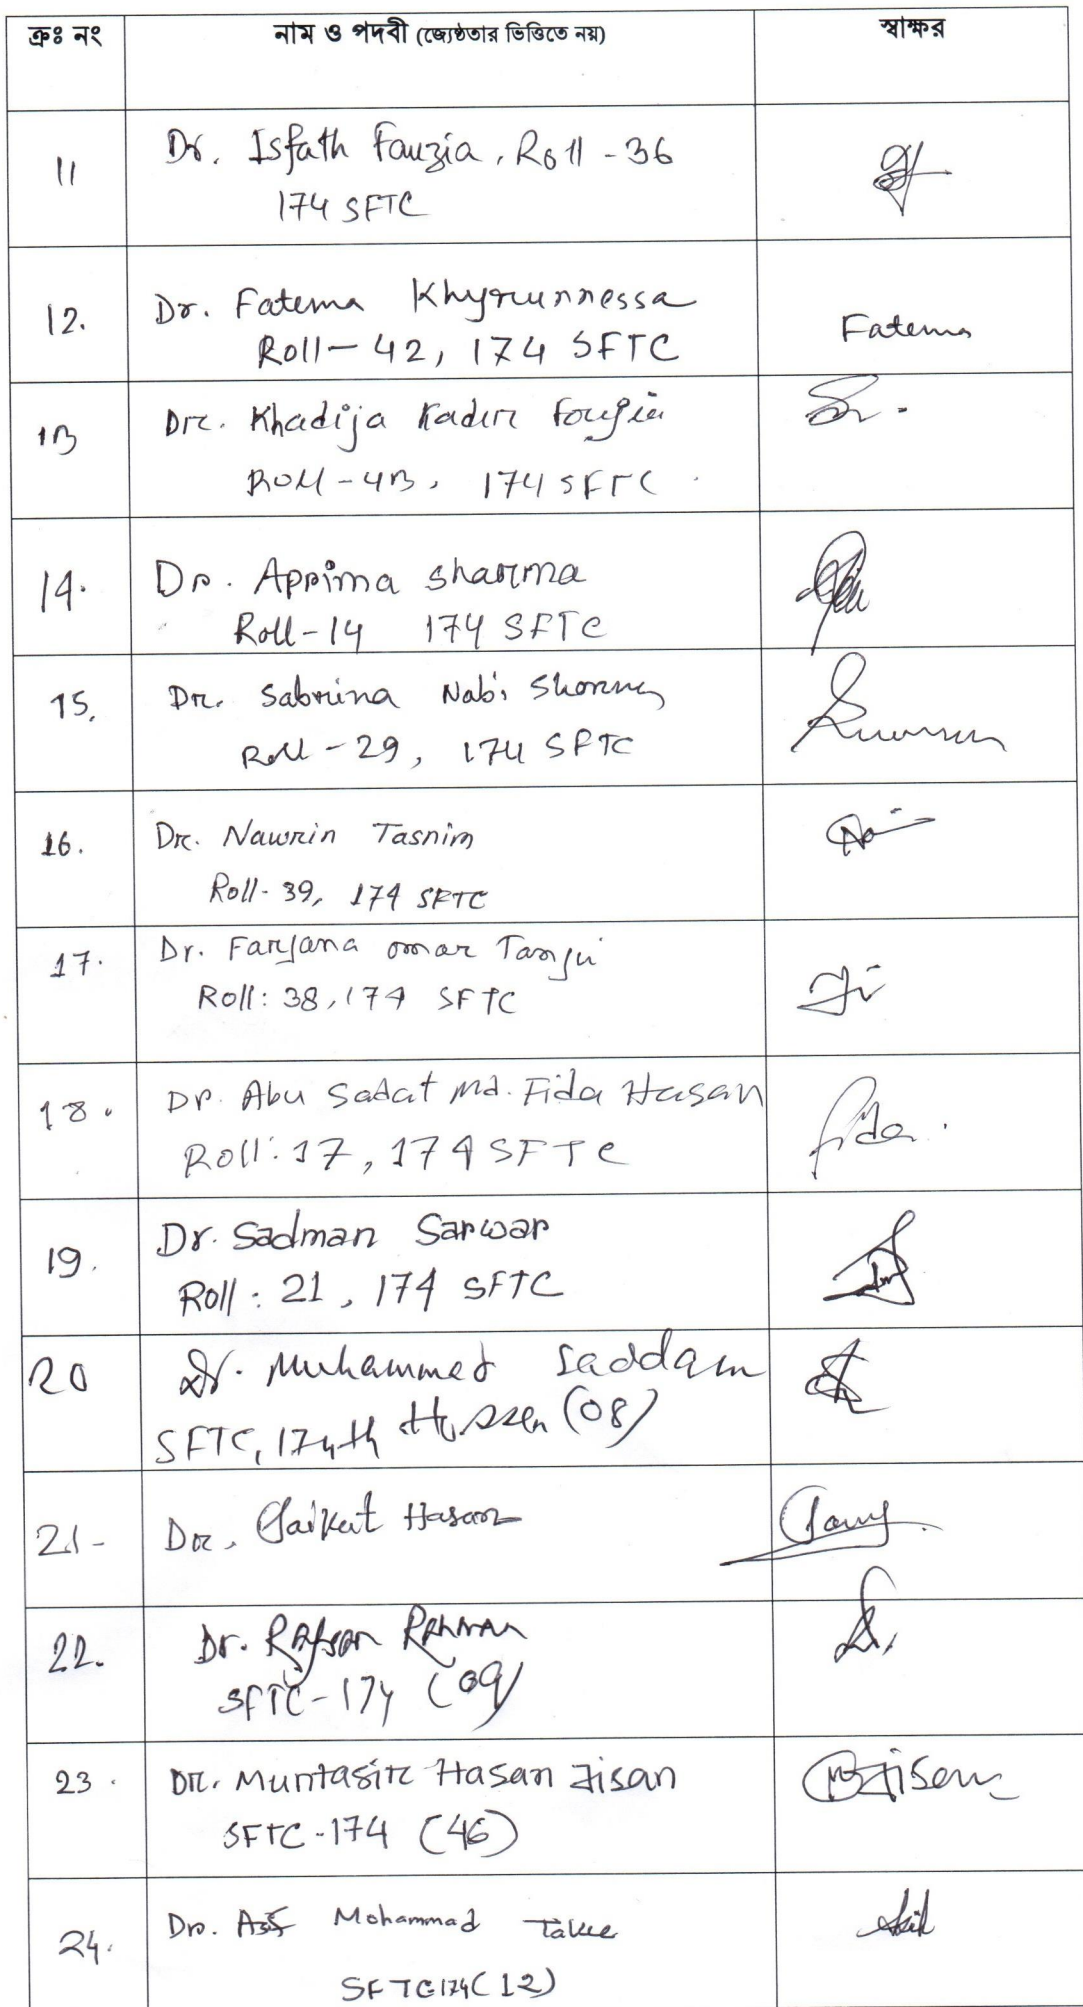 ক্রঃ নং নাম ও পদবী (জ্যেষ্ঠতার ভিত্তিতে নয়) স্বাক্ষর
11 Dr. Isfath Fauzia, Roll - 36
174 SFTC
12. Dr. Fatema Khyrunnessa Fatema
Roll - 42, 174 SFTC
13 Dr. Khadija Kadir Foujia
Roll - 43, 174 SFTC
14. Dr. Appima Sharma
Roll - 14 174 SFTC
15. Dr. Sabrina Nabi
Roll - 29, 174 SFTC
16. Dr. Nawrin Tasnim
Roll - 39, 174 SFTC
17. Dr. Farjana omar Tanju
Roll: 38, 174 SFTC
18. Dr. Abu Sadat Md. Fida Hasan Fida
Roll: 17, 174 SFTC
19. Dr. Sadman Sarwar
Roll: 21, 174 SFTC
20 Dr. Muhammed Saddam
SFTC, 174th Hossen (08)
21- Dr. Saikat Hasan
22. Dr. Rafsan Rahman
SFTC-174 (09)
23. Dr. Muntasir Hasan Jisan Jisan
SFTC-174 (46)
24. Dr. Mohammad
SFTC174 (12)